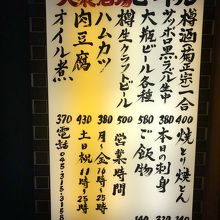 大衆酒場ビートル
樽酒(菊正宗)一合 400 焼とり焼とん
サッポロ黒ラベル生中 380 本日の刺身
大瓶ビール各種 580 ご飯物
樽生クラフトビール 500 営業時間
ハムカツ 380 月〜金16時〜25時
肉豆腐 430 土日祝11時〜25時
オイル煮 370 電話